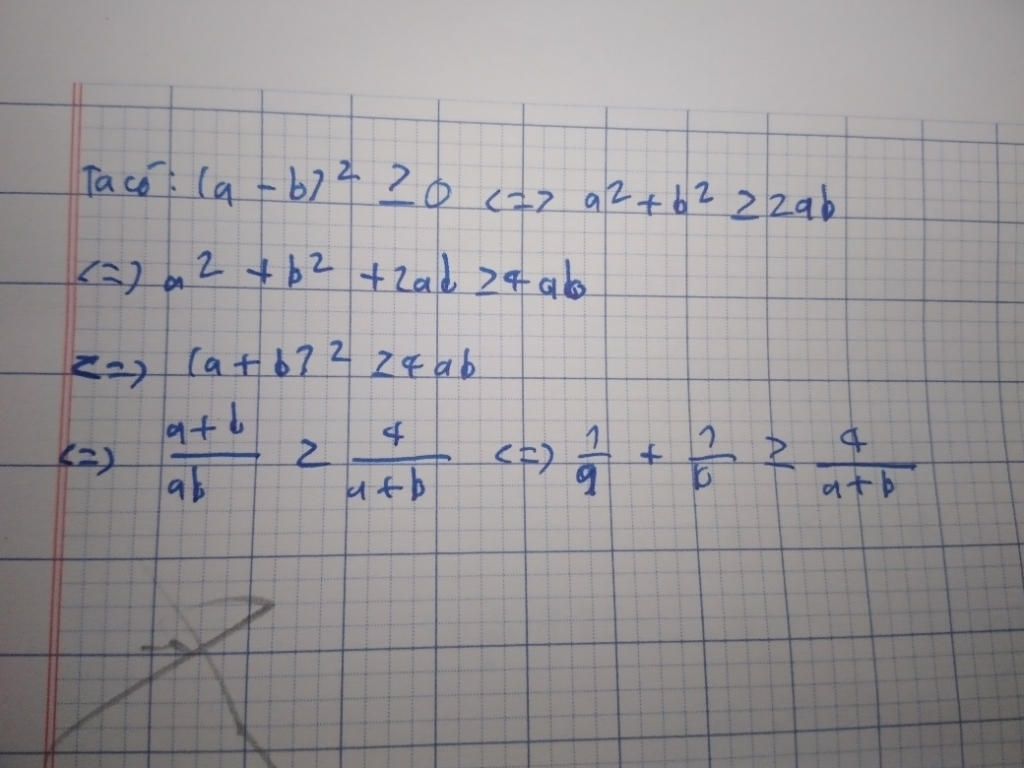 Ta có: (a - b)² ≥ 0 <=> a² + b² ≥ 2ab
<=> a² + b² + 2ab ≥ 4ab
<=> (a + b)² ≥ 4ab
<=> (a+b)/(ab) ≥ 4/(a+b) <=> 1/a + 1/b ≥ 4/(a+b)